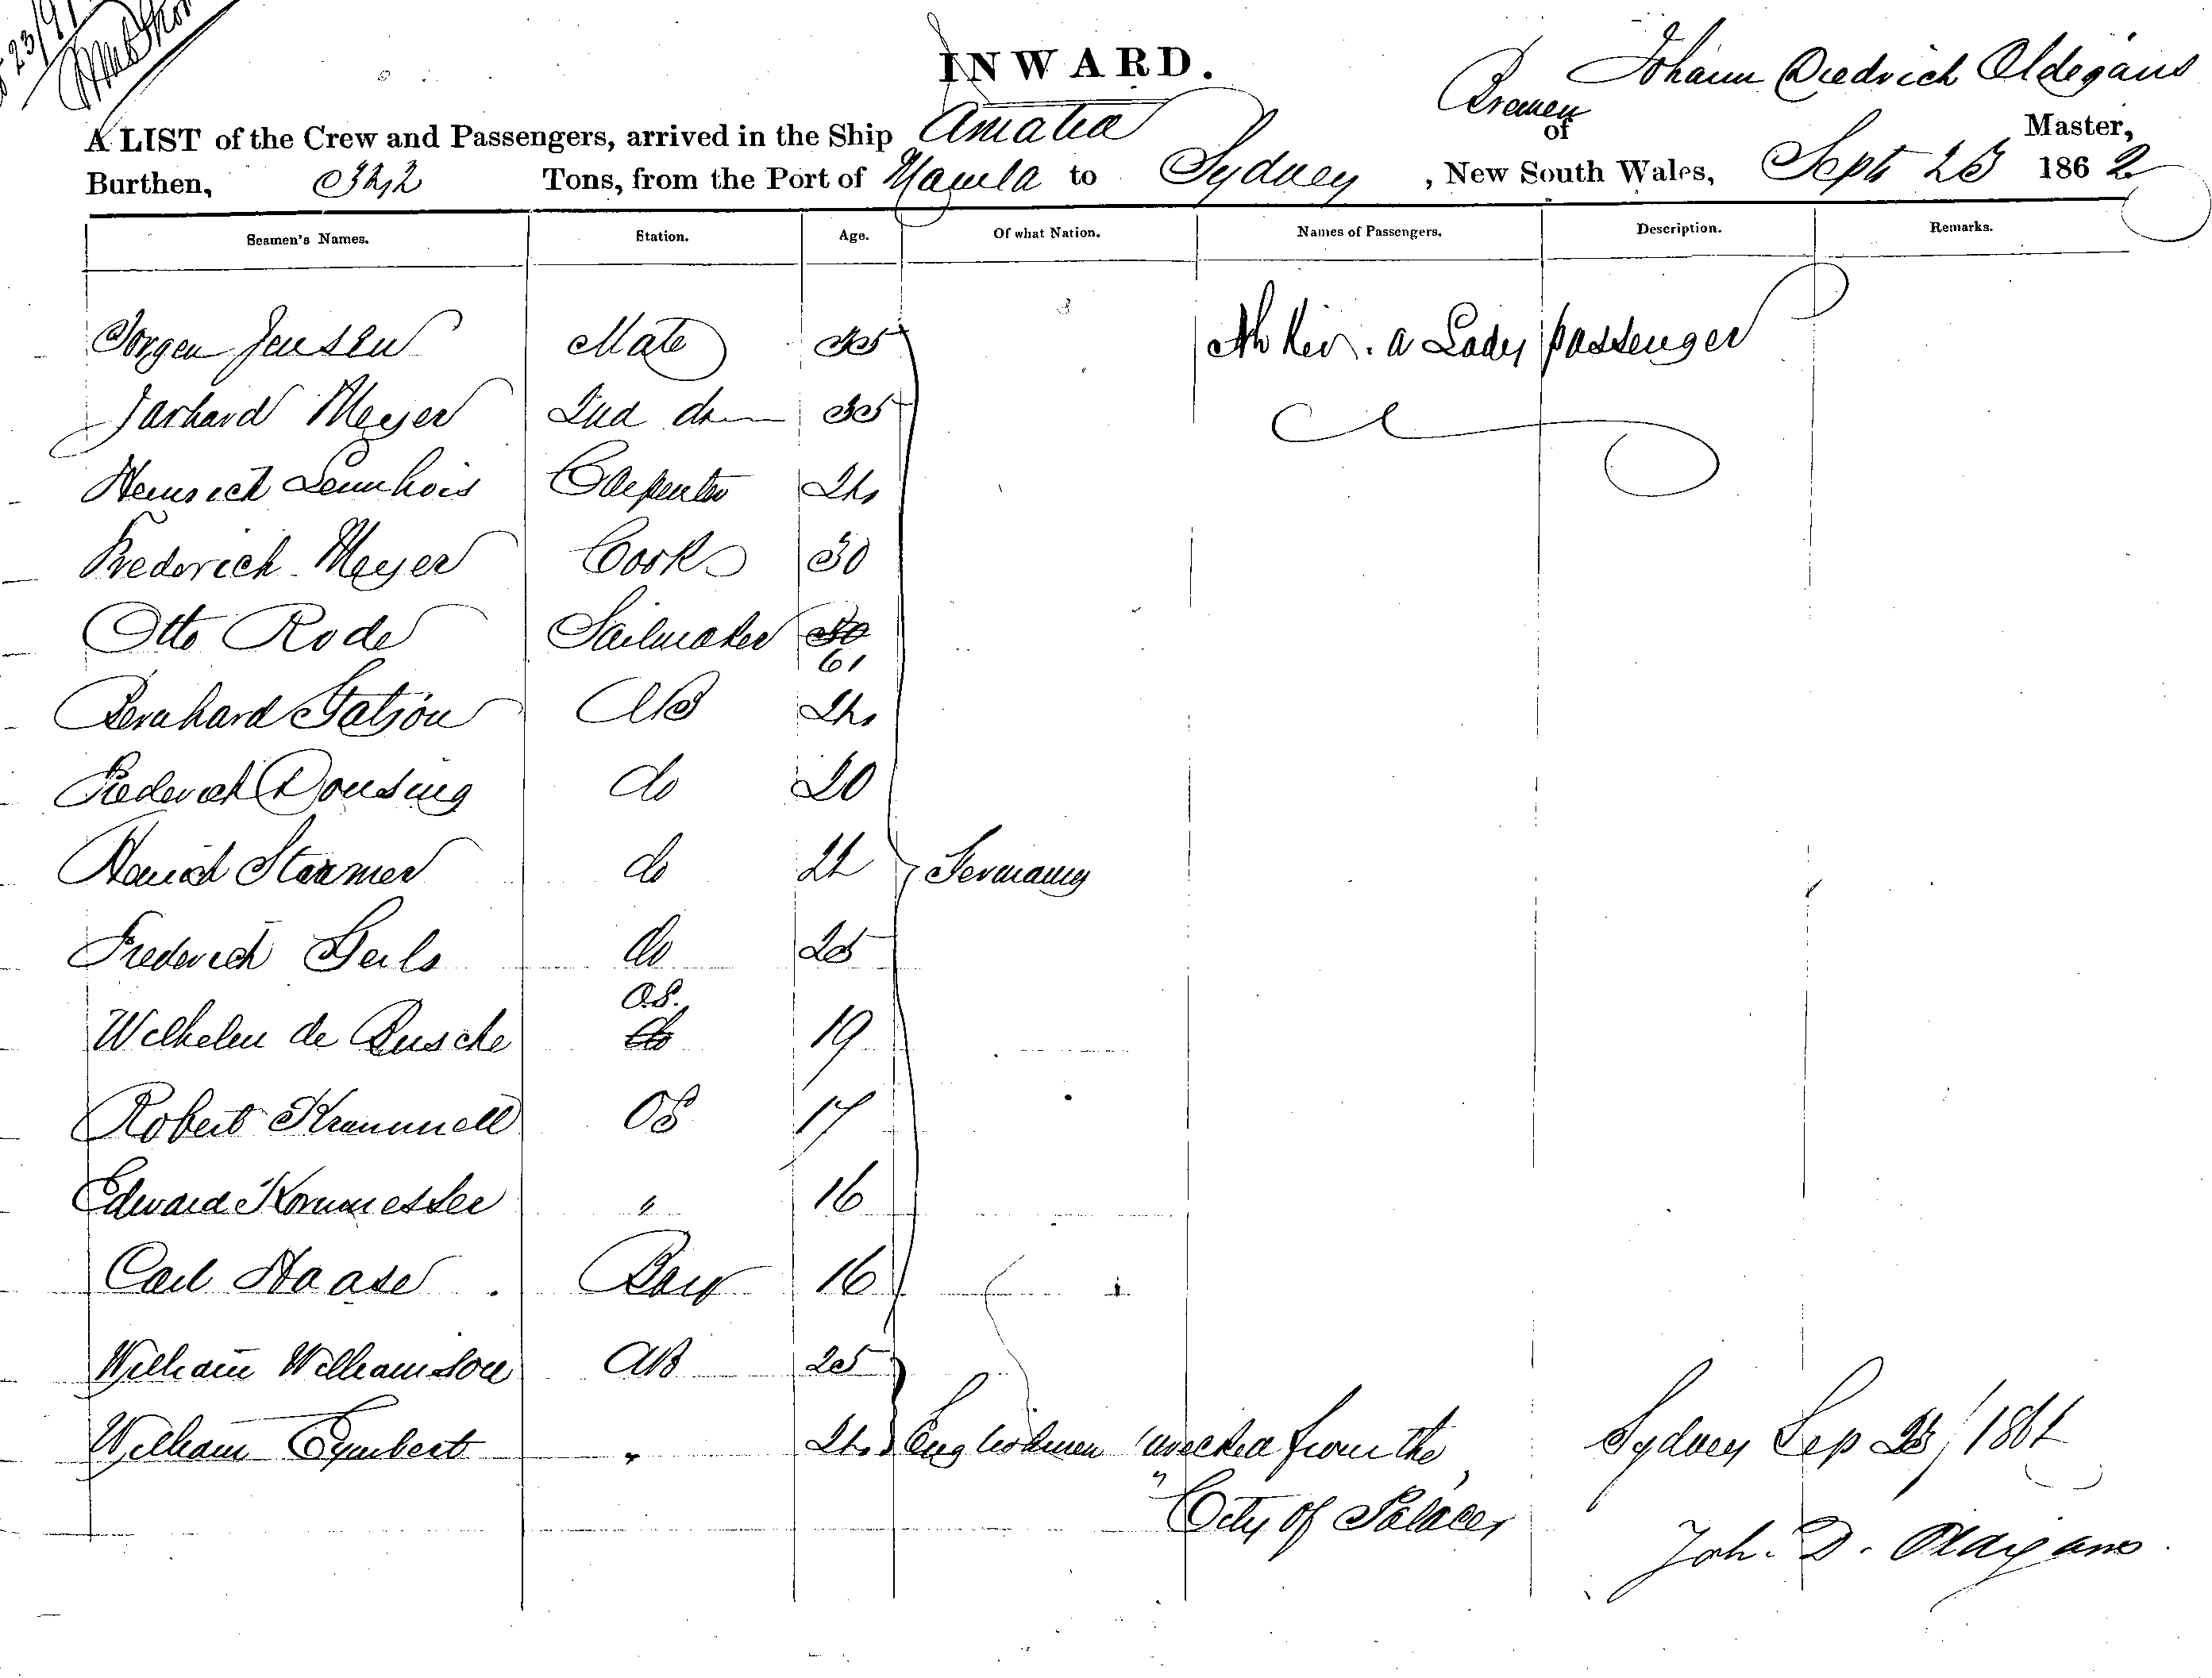 INWARD.
Johann Diedrich Oldegans
A LIST of the Crew and Passengers, arrived in the Ship Amalia Bremen of Master,
Burthen, 322 Tons, from the Port of Manila to Sydney, New South Wales, Sept 23 1862
Seamen's Names. Station. Age. Of what Nation. Names of Passengers. Description. Remarks.
Jorgen Jensen Mate a Lady passenger
Jarhard Meyer 2nd do 35
Heinrich Carpenter 24
Frederich Meyer Cook 30
Otto Rode Sailmaker 61
Bernhard AB 24
Frederich Dousing do 20
Stermer do 22 Germany
Frederich Geils do 25
O.S.
Wilhelm de Busche 19
Robert Krammell OS 17
Edward Kornmesser " 16
Carl Haase Boy 16
William Williamson AB 25
William " 24 Englishmen wrecked from the Sydney Sep 23/1862
"City of Palaces
Joh. D. Oldegans